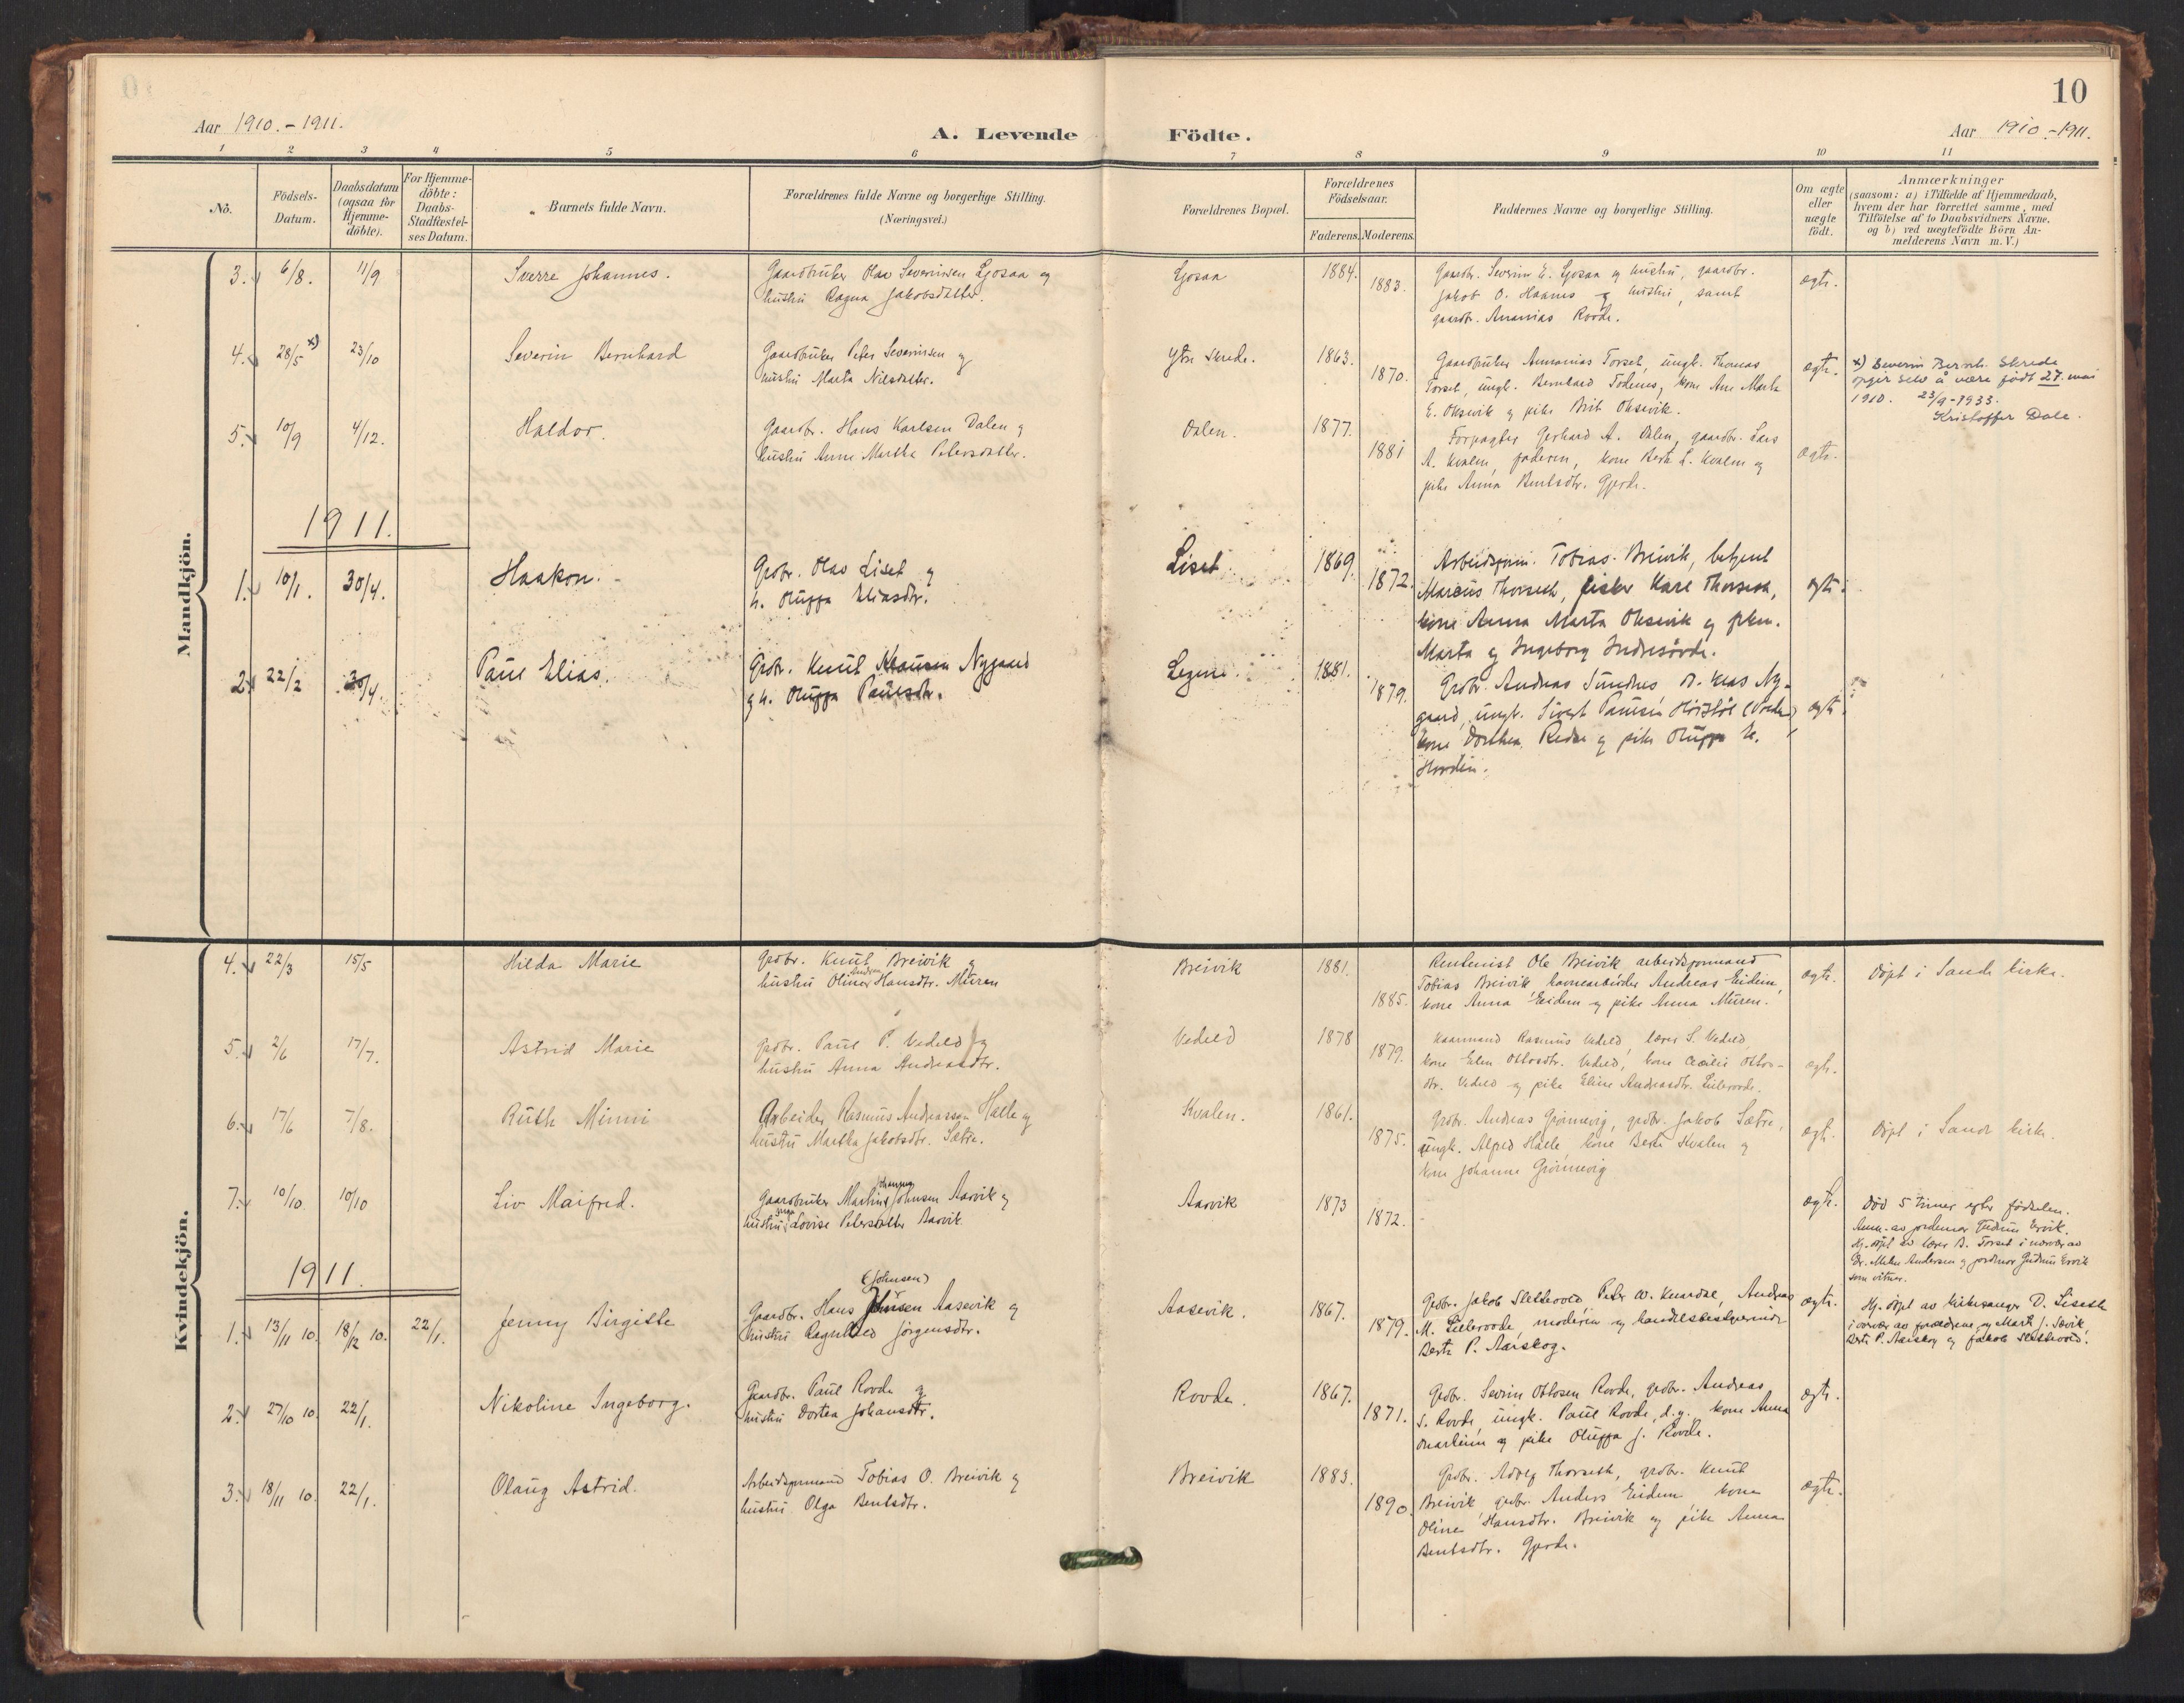 10
Aar 1910.-1911.
A. Levende Födte.
Aar 1910-1911.
1 2 3 4 5 6 7 8 9 10 11
No.
Födsels-
Datum.
Daabsdatum
(ogsaa for
Hjemme-
döbte).
For Hjemme-
döbte:
Daabs-
Stadfæstel-
ses Datum.
Barnets fulde Navn.
Forældrenes fulde Navne og borgerlige Stilling.
(Næringsvei.)
Forældrenes Bopæl.
Forældrenes
Födselsaar.
Faderens. Moderens.
Faddernes Navne og borgerlige Stilling.
Om ægte
eller
uægte
födt.
Anmærkninger
(saasom: a) i Tilfælde af Hjemmedaab,
hvem der har forrettet samme, med
Tilföielse af to Daabsvidners Navne,
og b) ved uægtefödte Börn An-
melderens Navn m. V.)
Mandkjön.
3. 6/8. 11/9 Sverre Johannes.
Gaardbruker Olav Severinsen Ljosaa og
hustru Ragna Jakobsdatter.
Ljosaa 1884. 1883.
Gaardbr. Severin E. Ljosaa og hustru, gaardbr.
Jakob O. Haanes og hustru, samt
gaardbr. Ananias Rovde.
ægte.
4. 28/5 x) 23/10 Severin Bernhard
Gaardbruker Peter Severinsen og
hustru Marta Nilsdatter.
Ytre Skrede. 1863. 1870.
Gaardbruker Annanias Torset, ungk. Thomas
Torset, ungk. Bernhard Todenes, kone Ane Marta
E. Oksevik og pike Brit Oksevik.
ægte.
x) Severin Bernh. Skrede
opgir selv å være født 27. mai
1910. 23/9-1933.
Kristoffer Dale.
5. 10/9 4/12. Haldor.
Gaardbr. Hans Karlsen Dalen og
hustru Anne Martha Petersdatter.
Dalen. 1877. 1881
Forpagter Gerhard A. Dalen, gaardbr. Lars
A. Kvalen, faderen, kone Berte L. Kvalen og
pike Anna Bentsdtr. Gjerde.
ægte.
1911.
1. 10/1. 30/4. Haakon.
Grdbr. Olav Liset og
h. Oluffa Eliasdtr.
Liset 1869. 1872.
Arbeidsform. Tobias Breivik, betjent
Marcus Thorseth, fisker Karl Thorseth,
kone Anna Marta Oksevik og pken.
Marta og Ingeborg Indresövde.
ægte.
2. 22/2 30/4. Paul Elias.
Grdbr. Knut Klausen Nygaard
og h. Oluffa Paulsdtr.
1881. 1879.
Grdbr. Andreas Sundnes, Klas Ny-
gaard, ungk. Sivert Paulsen
kone Dorthea og pike Oluffa K.
ægte.
Kvindekjön.
4. 22/3 15/5 Hilda Marie
Grdbr. Knut Breivik og
Andrea
hustru Oline Hansdtr. Muren
Breivik 1881. 1885.
Rentenist Ole Breivik arbeidsformand
Tobias Breivik havnearbeider Andreas Eidem,
kone Anna Eidem og pike Anna Muren.
ægte. Döpt i Sande kirke.
5. 2/6 17/7. Astrid Marie
Grdbr. Paul P. Vedeld og
hustru Anna Andreasdtr.
Vedeld 1878 1879.
Kaarmand Rasmus Vedeld, lærer S. Vedeld,
kone Elen Ottosdtr. Vedeld, kone Cecilie Ottos-
dtr. Vedeld og pike Eline Andreasdtr. Lillerovde.
ægte.
6. 17/6 7/8. Ruth Minni
Arbeider Rasmus Andreassen Halle og
hustru Martha Jakobsdtr. Sætre.
Kvalen. 1861. 1875.
Grdbr. Andreas Grönnevig, grdbr. Jakob Sætre,
ungk. Alfred Halle, kone Berte Kvalen og
kone Johanne Grönnevig
ægte. Döpt i Sande kirke.
7. 10/10. 10/10 Liv Maifred.
Gaardbruker Martinus Johnsen Aarvik og
hustru Lovise Petersdatter Aarvik.
Aarvik 1873 1872.
ægte.
Död 5 timer efter födselen.
Anm. av jordemor Gudrun Ervik.
Hj.-döpt av lærer B. Torset i nærvær av
Andersen og jordmor Gudrun Ervik
som vitner.
1911.
1. 13/11 10. 18/12 10. 22/1. Jenny Birgitte
(Johnsen)
Gaardbr. Hans Johnsen Aasevik og
hustru Ragnhild Jörgensdtr.
Aasevik. 1867. 1879.
Grdbr. Jakob Slettevold Peter W. Knardal, Andreas
M. Lillerovde, moderen og handelsbestyrerinde
Berte P. Aarskog.
ægte.
Hj. döpt av kirkesanger D. Liseth
i nærvær av forældrene og Marte J. Sævik,
Berte P. Aarskog og Jakob Slettevold.
2. 27/10 10. 22/1. Nikoline Ingeborg.
Gaardbr. Paul Rovde og
hustru Dortea Johansdtr.
Rovde. 1867. 1871.
Grdbr. Severin Ottosen Rovde, grdbr. Andreas
S. Rovde, ungk. Paul Rovde, d.y. kone Anna
og pike Oluffa J. Rovde.
ægte.
3. 18/11 10. 22/1. Olaug Astrid.
Arbeidsformand Tobias O. Breivik og
hustru Olga Bentsdtr.
Breivik 1883. 1890.
Grdbr. Adolf Thorseth, grdbr. Knut
Breivik grdbr. Anders Eidem kone
Oline Hansdtr. Breivik og pike Anna
Bentsdtr. Gjerde.
ægte.